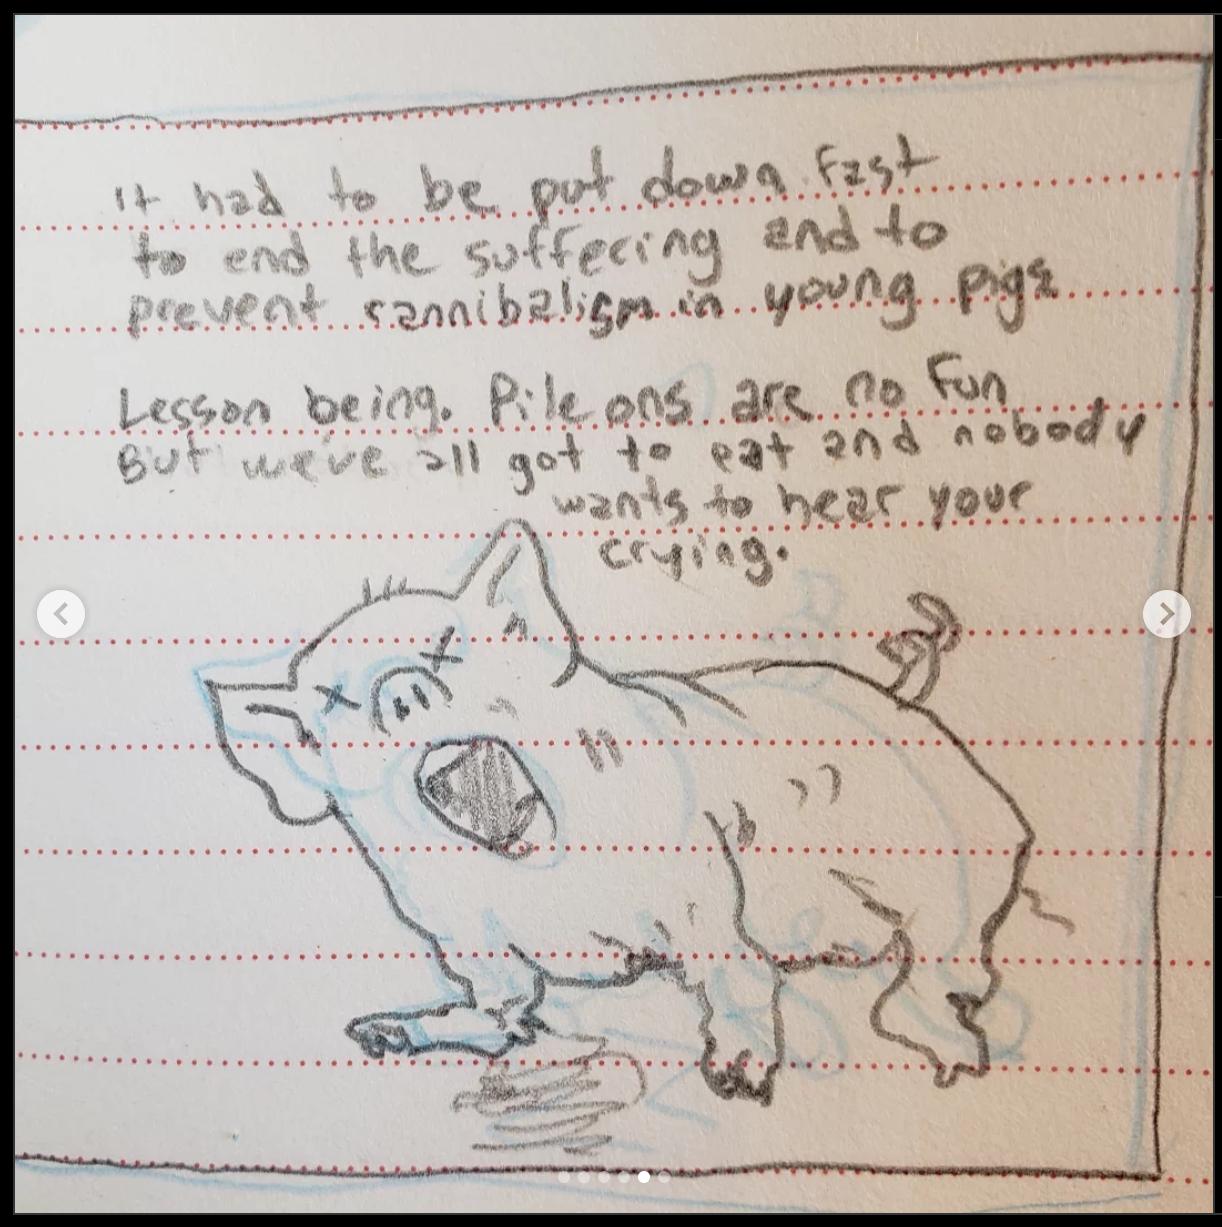 It had to be put down fast
to end the suffering and to
prevent cannibalism in young pigs
Lesson being. Pile ons are no fun
But we've all got to eat and nobody
wants to hear your
crying.